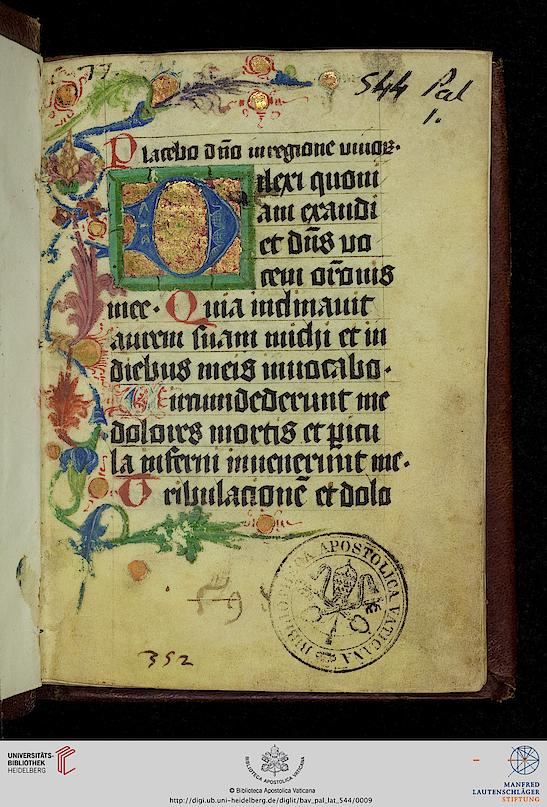 77.
544 Pal
1.
Placebo dño in regione viuor.
Dilexi quoni
am exaudi
et dñs vo
cem orõnis
mee. Quia inclinauit
aurem suam michi et in
diebus meis inuocabo.
Circumdederunt me
dolores mortis et picu
la inferni inuenerunt me.
Tribulacionẽ et dolo
BIBLIOTHECA APOSTOLICA VATICANA
352
UNIVERSITÄTS-
BIBLIOTHEK
HEIDELBERG
BIBLIOTHECA APOSTOLICA VATICANA
© Biblioteca Apostolica Vaticana
http://digi.ub.uni-heidelberg.de/diglit/bav_pal_lat_544/0009
MANFRED
LAUTENSCHLÄGER
STIFTUNG